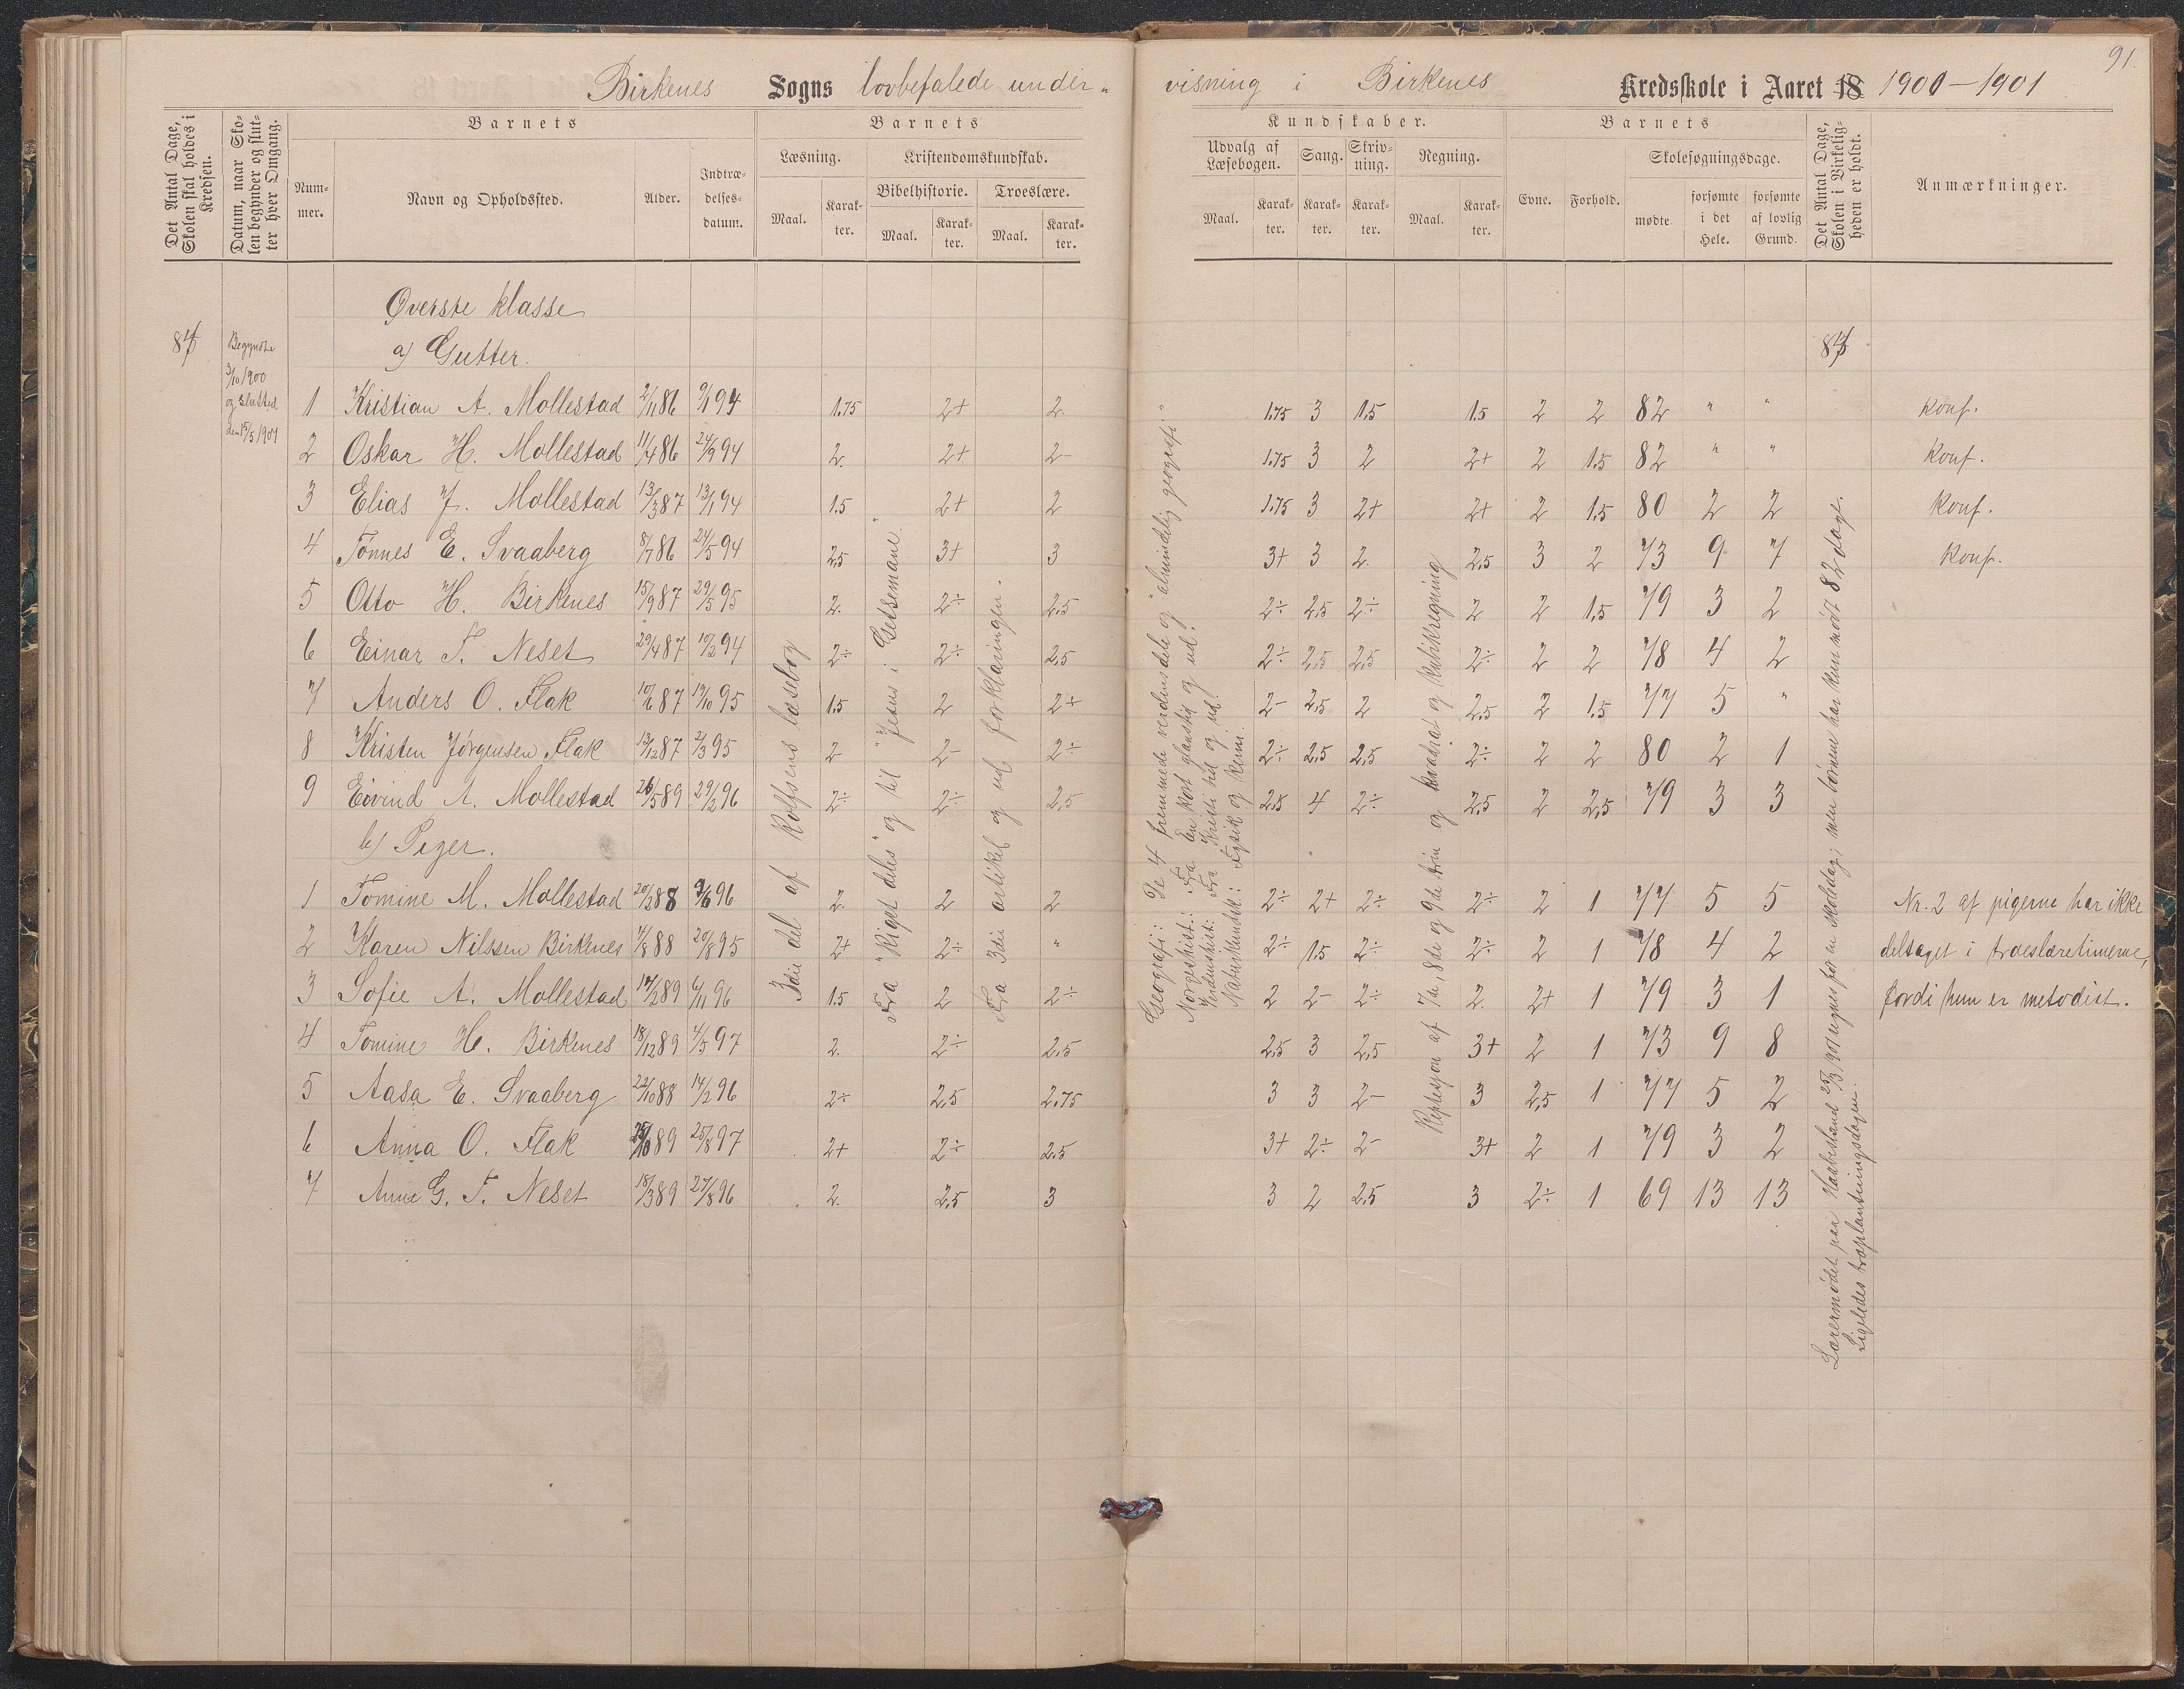 91.
Birkenes Sogns lovbefalede under„ visning i Birkenes Kredsskole i Aaret 18 1900–1901
Det Antal Dage, Skolen skal holdes i Kredsen.
Datum, naar Skolen begynder og slutter hver Omgang.
Barnets
Nummer.
Navn og Opholdssted.
Alder.
Indtrædelsesdatum.
Barnets
Læsning.
Maal.
Karakter.
Kristendomskundskab.
Bibelhistorie.
Maal.
Karakter.
Troeslære.
Maal.
Karakter.
Kundskaber.
Udvalg af Læsebogen.
Maal.
Karakter.
Sang.
Karakter.
Skrivning.
Karakter.
Regning.
Maal.
Karakter.
Barnets
Evne.
Forhold.
Skolesøgningsdage.
mødte
forsømte i det Hele.
forsømte af lovlig Grund.
Det Antal Dage, Skolen i Virkeligheden er holdt.
Anmærkninger.
Øverste klasse
a) Gutter.
Begyndte
3/10 1900
og slutted
den 15/5 1901
1 Kristian A. Mollestad 2/11 86 9/1 94 1.75 2+ 2. 1.75 3 1.5 1.5 2 2 82 " " Konf.
2 Oskar H. Mollestad 11/4 86 24/9 94 2. 2+ 2- 1.75 3 2 2+ 2 1.5 82 " " Konf.
3 Elias J. Mollestad 13/3 87 13/1 94 1.5 2+ 2 1.75 3 2+ 2+ 2 1.5 80 2 2 Konf.
4 Tønnes E. Svaaberg 8/7 86 24/5 94 2,5 3+ 3 3+ 3 2. 2.5 3 2 73 9 7 Konf.
5 Otto H. Birkenes 15/9 87 29/5 95 2. 2÷ 2.5 2÷ 2.5 2÷ 2 2 1.5 79 3 2
6 Einar T. Neset 29/4 87 10/2 94 2÷ 2÷ 2.5 2÷ 2.5 2.5 2÷ 2 2 78 4 2
7 Anders O. Flak 10/6 87 19/10 95 1.5 2 2+ 2- 2.5 2 2.5 2 1.5 77 5 "
8 Kristen Jørgensen Flak 13/12 87 2/3 95 2- 2- 2÷ 2÷ 2.5 2.5 2÷ 2 2 80 2 1
9 Eivind A. Mollestad 26/5 89 29/2 96 2÷ 2÷ 2.5 2.5 4 2÷ 2.5 2 2.5 79 3 3
b) Piger.
1 Tomine M. Mollestad 20/2 88 9/6 96 2. 2 2 2÷ 2+ 2÷ 2÷ 2 1 77 5 5 Nr. 2 af pigerne har ikke
2 Karen Nilssen Birkenes 7/8 88 20/8 95 2+ 2÷ " 2÷ 1.5 2÷ 2÷ 2 1 78 4 2 deltaget i troeslæretimerne,
3 Sofie A. Mollestad 14/2 89 6/11 96 1.5 2 2÷ 2 2- 2÷ 2. 2+ 1 79 3 1 fordi hun er metodist.
4 Tomine H. Birkenes 18/12 89 4/5 97 2. 2÷ 2.5 2.5 3 2.5 3+ 2 1 73 9 8
5 Aasa E. Svaaberg 22/10 88 14/2 96 2÷ 2.5 2.75 3 3 2- 3 2,5 1 77 5 2
6 Anna O. Flak 25/10 89 25/8 97 2+ 2÷ 2.5 3+ 2÷ 2- 3+ 2 1 79 3 2
7 Anne G. T. Neset 18/3 89 27/8 96 2. 2.5 3 3 2 2.5 3 2÷ 1 69 13 13
3die del af Rolfsens læsebog
Fra "Riget deles" og til "Jesus i Getsemane."
Fra 3die artikel og ud forklaringen.
Geografi: De 4 fremmede verdensdele og "almindelig geografi."
Norgeshist.: Fra En kort glanstid og ud.
Verdenshist: Fra Kristi tid og ud.
Naturkundsk.: Fysik og Kemi.
Repetesjon af 7de, 8de og 9de trin og kvadrat og kubikregning
Lærermødet paa Haabesland 25/3 1901 regnes for en skoledag; men børnene har kun mødt 82 dage.
Ligeledes træplantningsdagen.